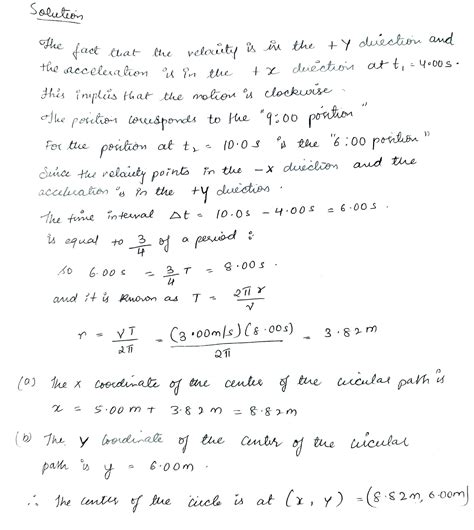 Solution
The fact that the velocity is in the + y direction and
the acceleration is in the + x direction at t₁ = 4.00 s.
This implies that the motion is clockwise.
The position corresponds to the "9:00 position"
For the position at t₂ = 10.0 s is the "6:00 position"
Since the velocity points in the -x direction and the
acceleration is in the +y direction.
The time interval Δt = 10.0s - 4.00s = 6.00s.
is equal to 3/4 of a period :
so 6.00 s = 3/4 T = 8.00 s.
and it is known as T = 2πr/v
r = vT/2π = (3.00m/s)(8.00s)/2π = 3.82m
(a) The x coordinate of the center of the circular path is
x = 5.00 m + 3.82 m = 8.82 m
(b) The y coordinate of the center of the circular
path is y = 6.00m.
∴ The center of the circle is at (x, y) = (8.82m, 6.00m)